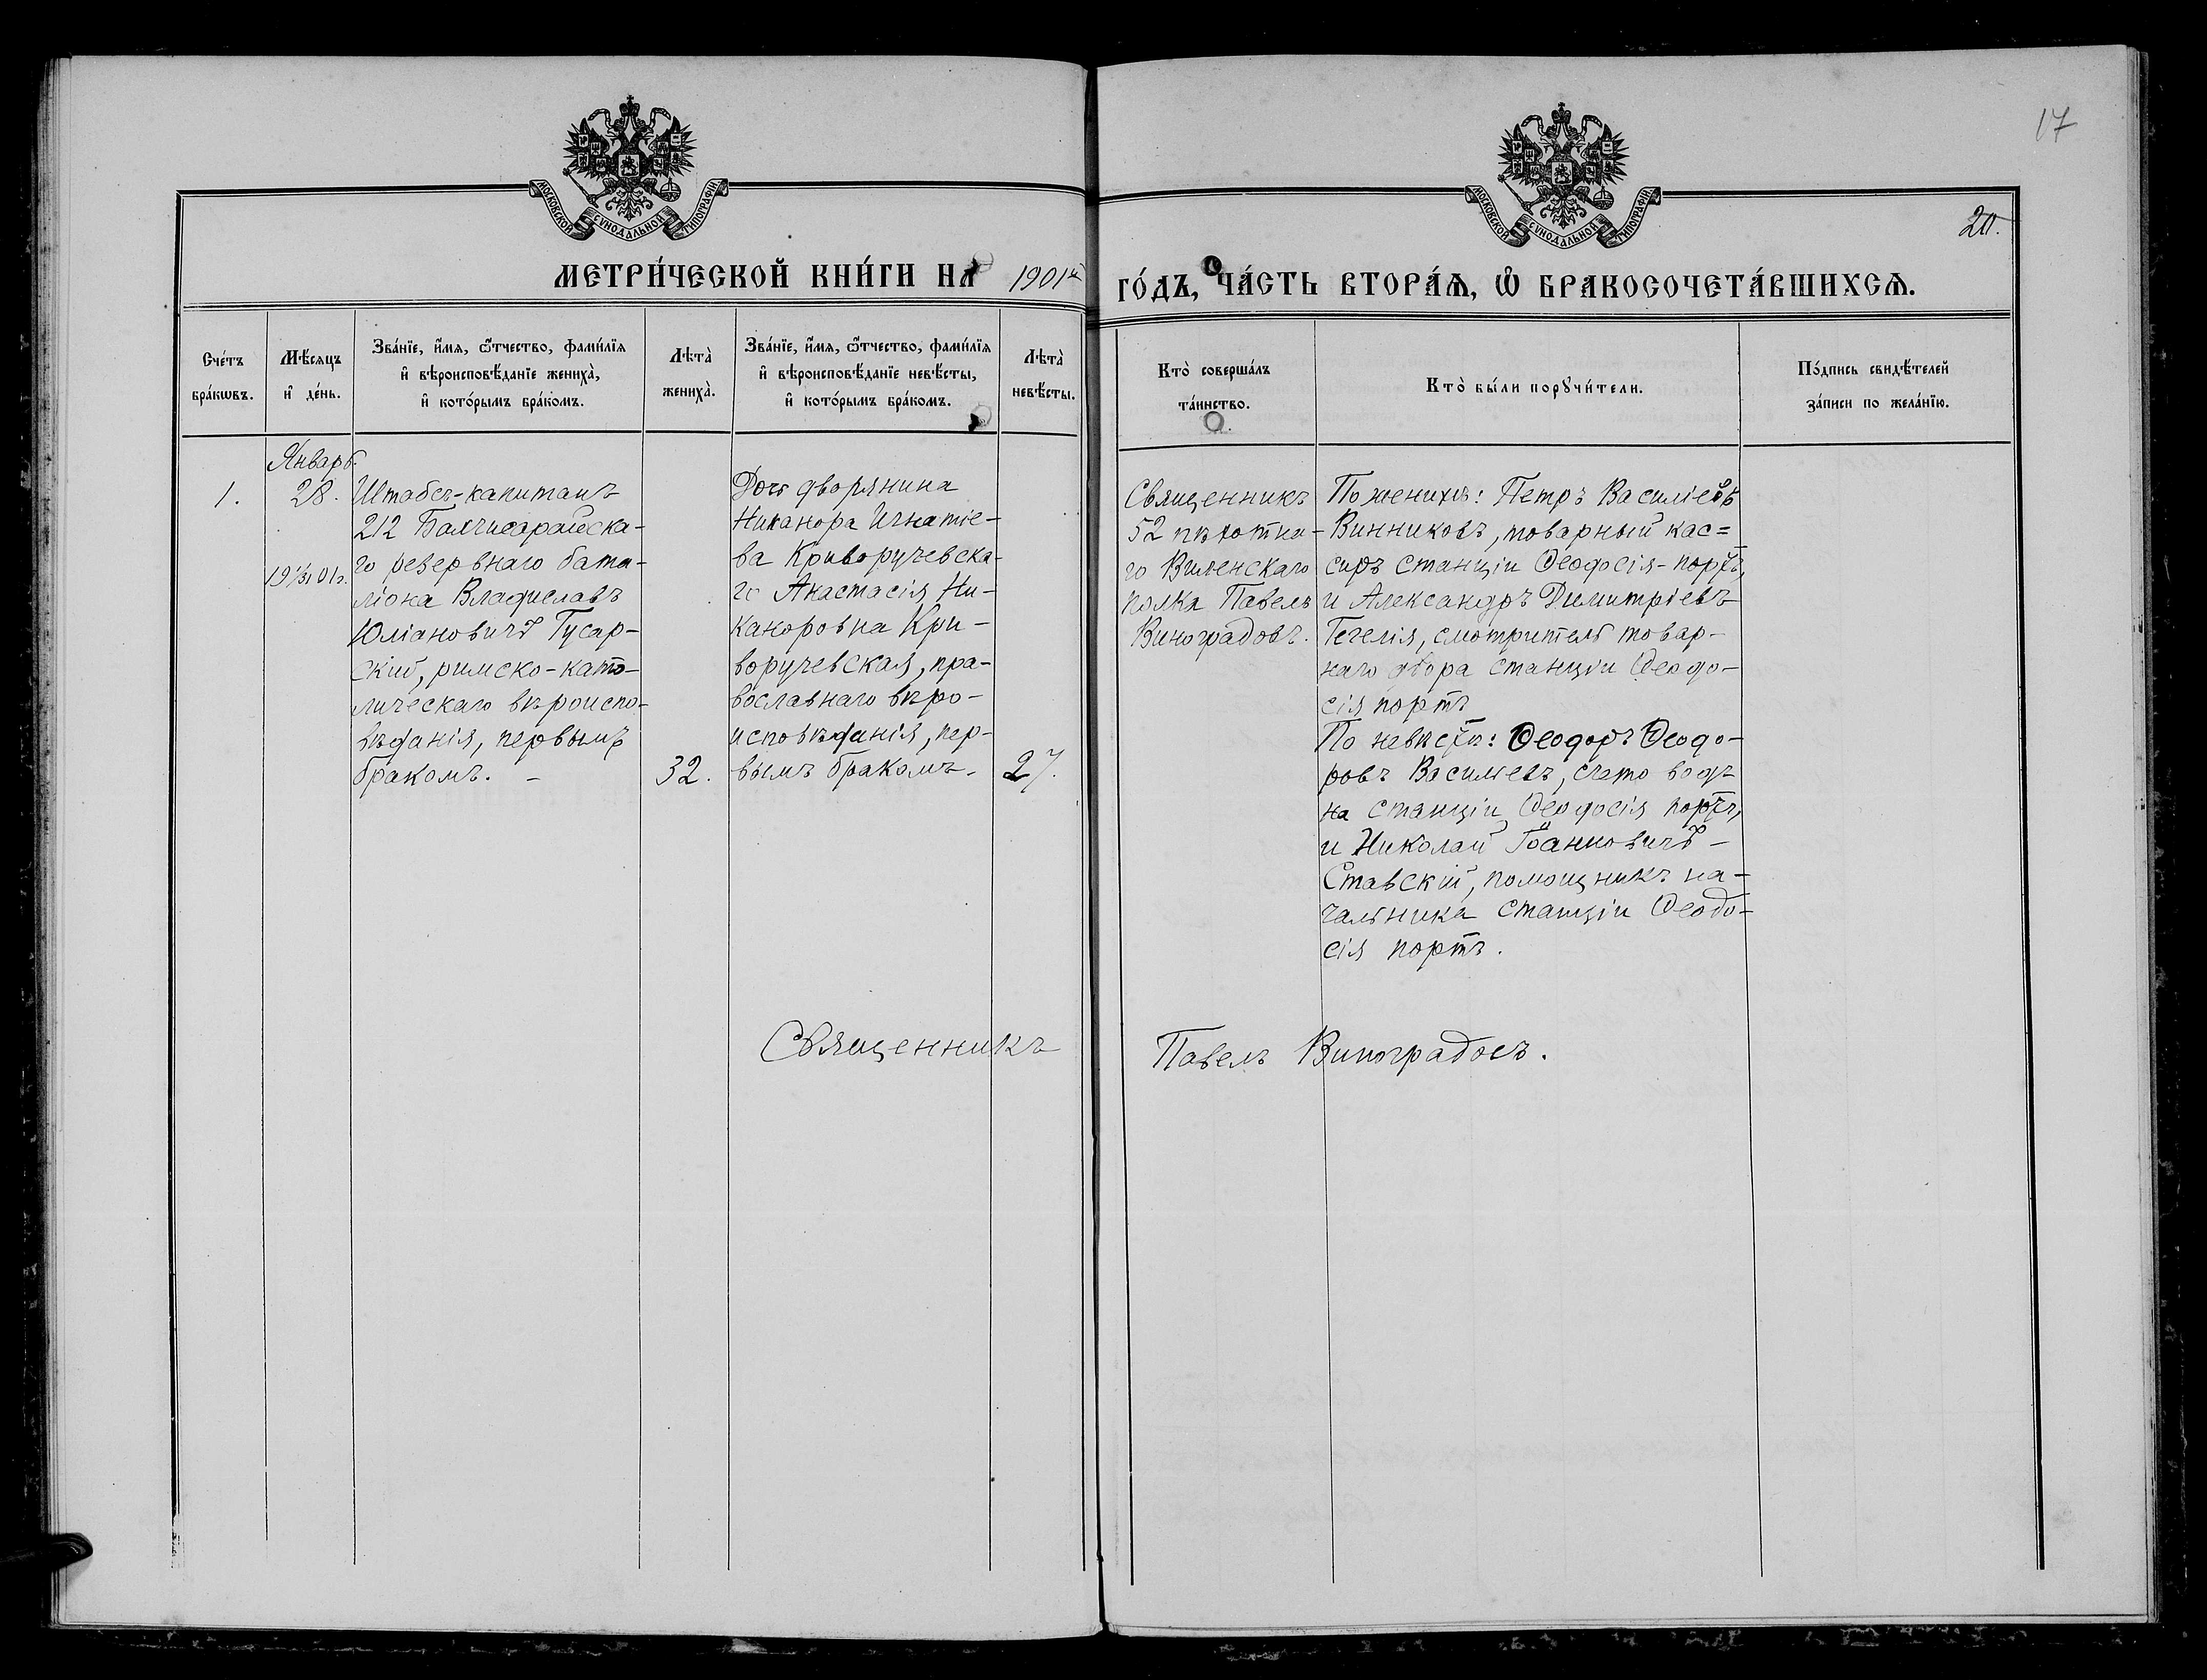 17
МОСКОВСКОЙ СѴНОДАЛЬНОЙ ТИПОГРАФІИ
МОСКОВСКОЙ СѴНОДАЛЬНОЙ ТИПОГРАФІИ
20.
МЕТРИ́ЧЕСКОЙ КНИ́ГИ НА 1901й
ГО́ДЪ, ЧА́СТЬ ВТОРА́Ѧ, Ѽ БРАКОСОЧЕТА́ВШИХСѦ.
Сче́тъ
бра́кѡвъ.
Мѣ́сѧцъ
и҆ де́нь.
Зва́нїе, и҆́мѧ, ѻ҆́тчество, фами́лїѧ
и҆ вѣроисповѣ́данїе жениха̀,
и҆ кото́рымъ бра́комъ.
Лѣта̀
жениха̀.
Зва́нїе, и҆́мѧ, ѻ҆́тчество, фами́лїѧ
и҆ вѣроисповѣ́данїе невѣ́сты,
и҆ кото́рымъ бра́комъ.
Лѣта̀
невѣ́сты.
Кто̀ соверша́лъ
та́инство.
Кто̀ бы́ли порꙋчи́тели.
По́дпись свидѣ́телей
за́писи по жела́нїю.
1.
Январь.
28.
19 01г.
Штабсъ-капитанъ
212 Бахчисарайска-
го резервнаго бата-
ліона Владиславъ
Юліановичъ Гусар-
скій, римско-като-
лическаго вѣроиспо-
вѣданія, первымъ
бракомъ. -
32.
Дочь дворянина
Никанора Игнатіе-
ва Криворучевска-
го Анастасія Ни-
каноровна Кри-
воручевская, пра-
вославнаго вѣро-
исповѣданія, пер-
вымъ бракомъ.
27.
Священникъ
52 пѣхотна-
го Виленскаго
полка Павелъ
Виноградовъ.
По женихѣ: Петръ Василіевъ
Винниковъ, товарный кас=
сиръ станціи Ѳеодосія-портъ,
и Александръ Димитріевъ
Гегелія, смотритель товар-
наго двора станціи Ѳеодо-
сія портъ
По невѣстѣ: Ѳеодоръ Ѳеодо-
ровъ Василіевъ, счетоводъ
на станціи Ѳеодосія портъ,
и Николай Іоанновичъ -
Ставскій, помощникъ на-
чальника станціи Ѳеодо-
сія портъ.
Священникъ Павелъ Виноградовъ.